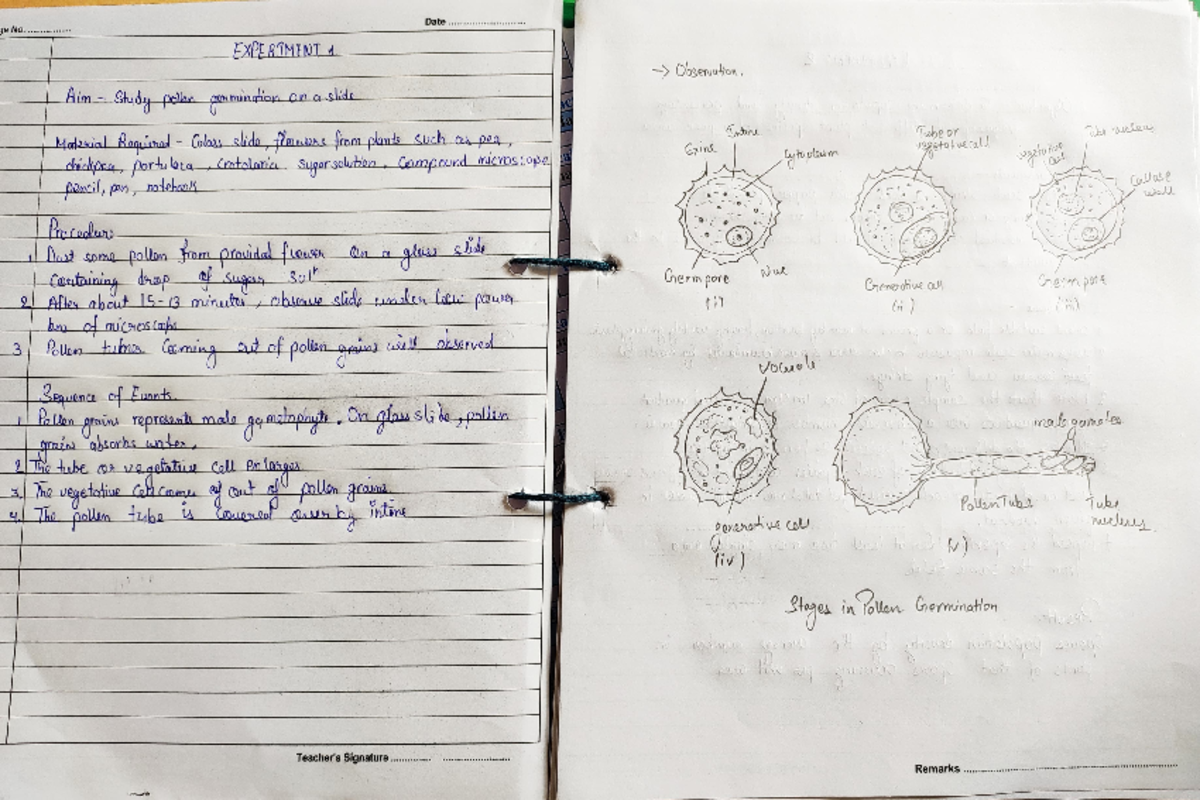 ge No. ..............
Date ..............................
EXPERTMENT 1
Aim - Study pollen germination on a slide
Material Required - Glass slide, flowers from plants such as pea,
chickpea, portulaca, Crotolaria sugar solution, Compound microscope
pencil, pen, notebook
Procedure
1. Dust some pollen from provided flower on a glass slide
containing drop of sugar Solt
2. After about 15-13 minutes, observe slide under low power
lins of microscope
3. Pollen tubes coming out of pollen grains will observed
Sequence of Events
1. Pollen grains represents male gametophyte. On glass slide, pollen
grain absorbs water.
2. The tube or vegetative cell enlarges
3. The vegetative cell comes of out of pollen grains
4. The pollen tube is covered over by intine
Teacher's Signature ............ ....................
-> Observation.
Exine
Entine
Cytoplasm
Germ pore
Nuc
(i)
Tube or
vegetative cell
Generative cell
(ii)
Tube nucleus
vegetative
cell
Callase
wall
Germ pore
(iii)
Vacuole
generative cell
(iv)
male gametes
Pollen Tube
Tube
nucleus
(v)
Stages in Pollen Germination
Remarks ..............................